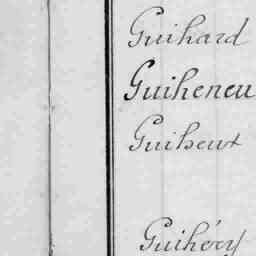 Guihard
Guiheneu
Guiheux
Guihéry